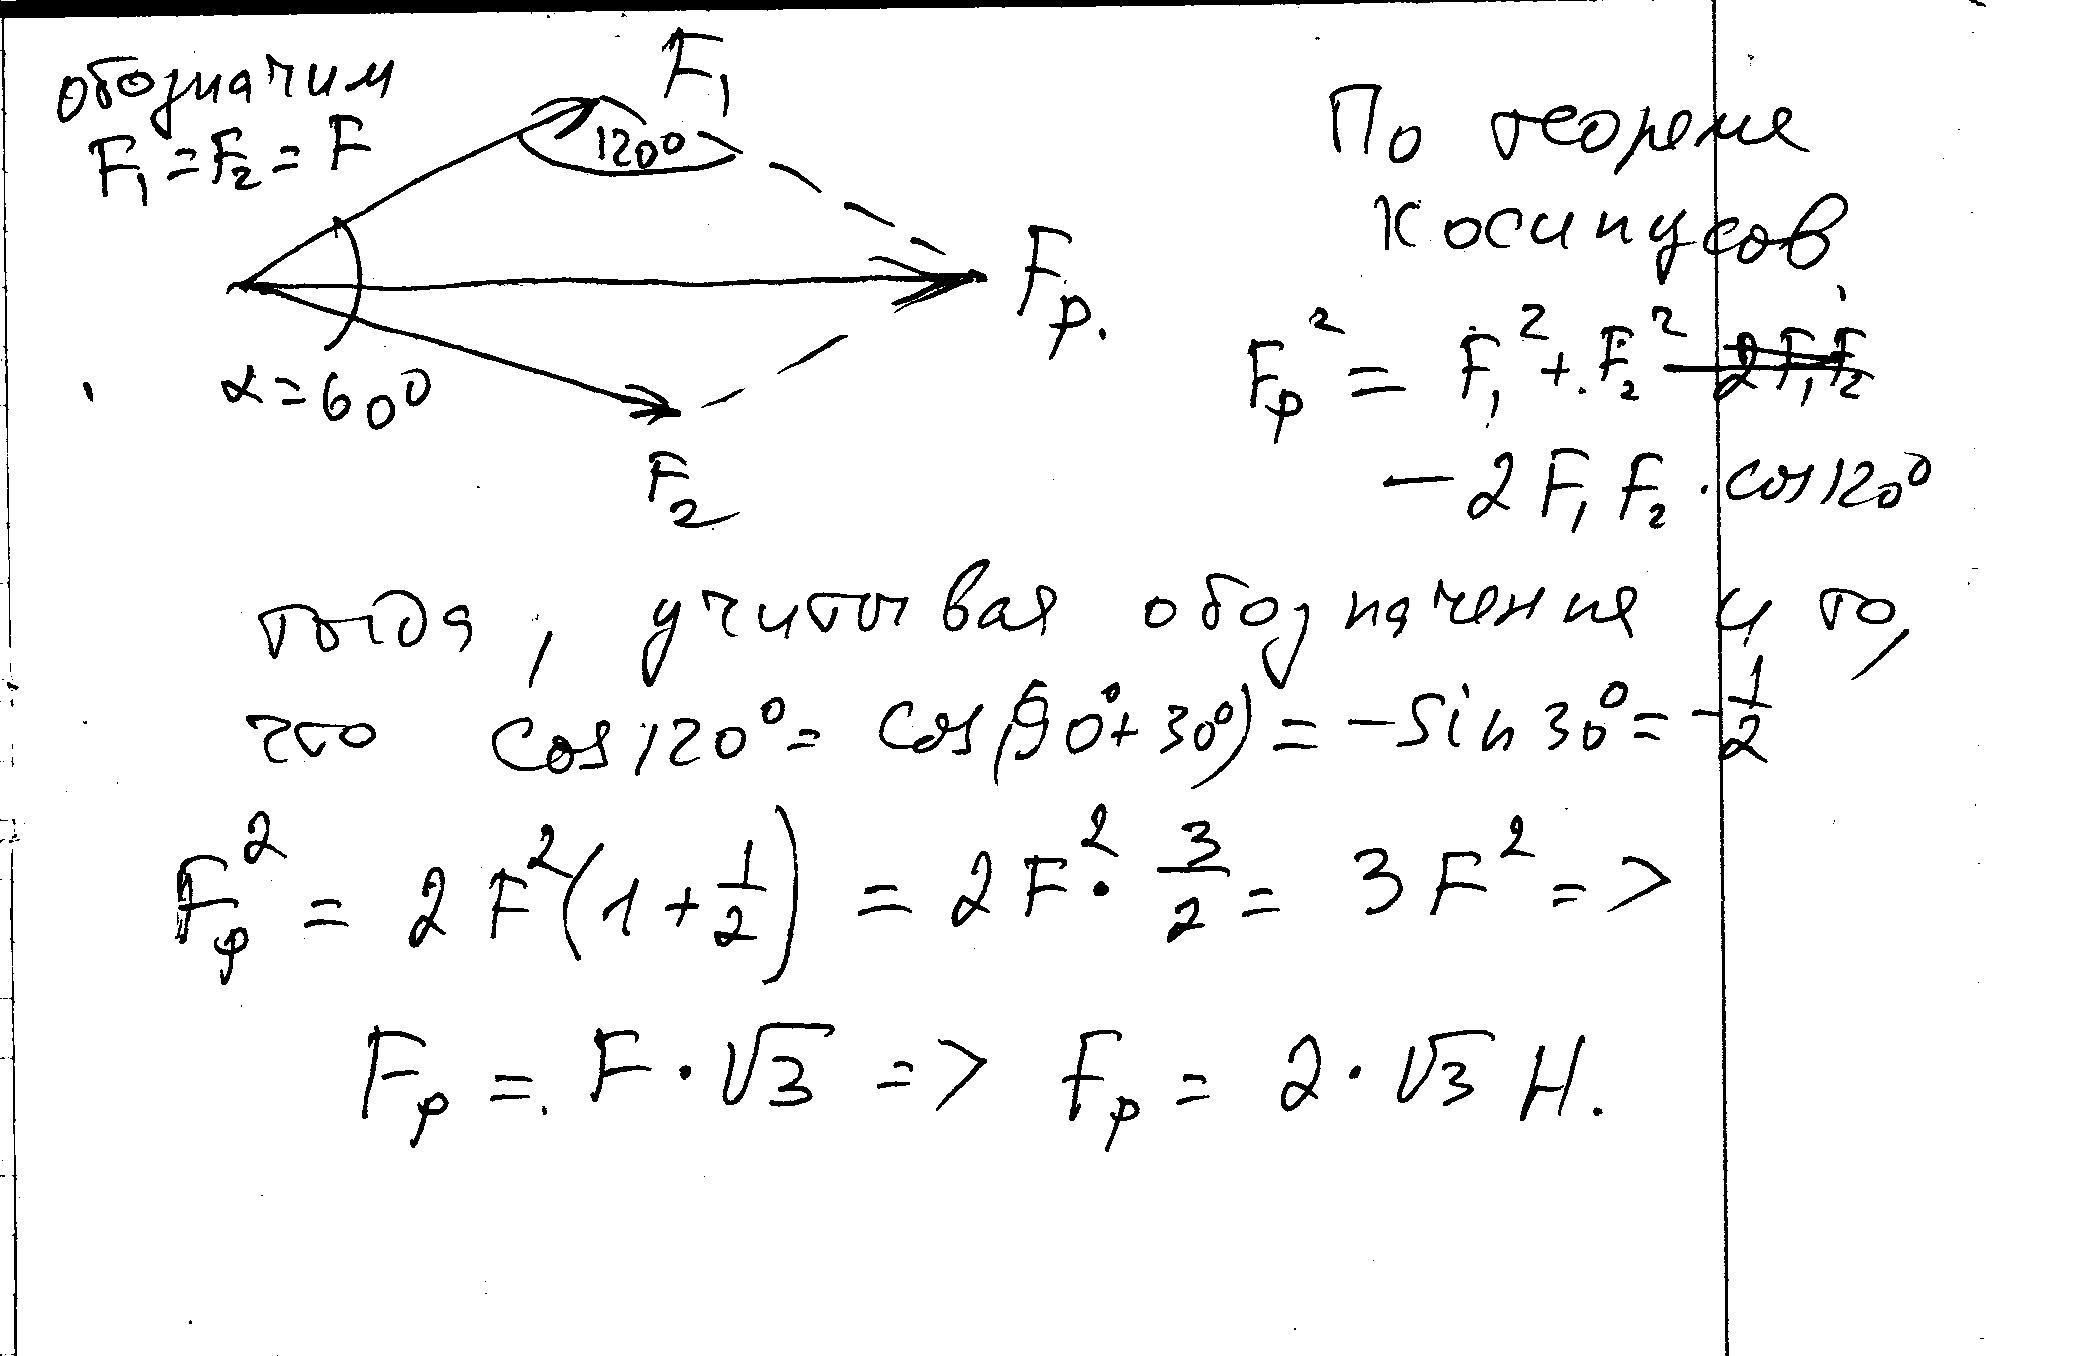 обозначим
F₁ = F₂ = F
F₁
120°
Fр.
α = 60°
F₂
По теореме
косинусов
Fр² = F₁² + F₂² - 2F₁F₂
- 2F₁F₂ · cos120°
тогда, учитывая обозначения и то,
что cos120° = cos(90° + 30°) = -Sin30° = -1/2
Fр² = 2F²(1 + 1/2) = 2F² · 3/2 = 3F² =>
Fр = F · √3 => Fр = 2 · √3 Н.